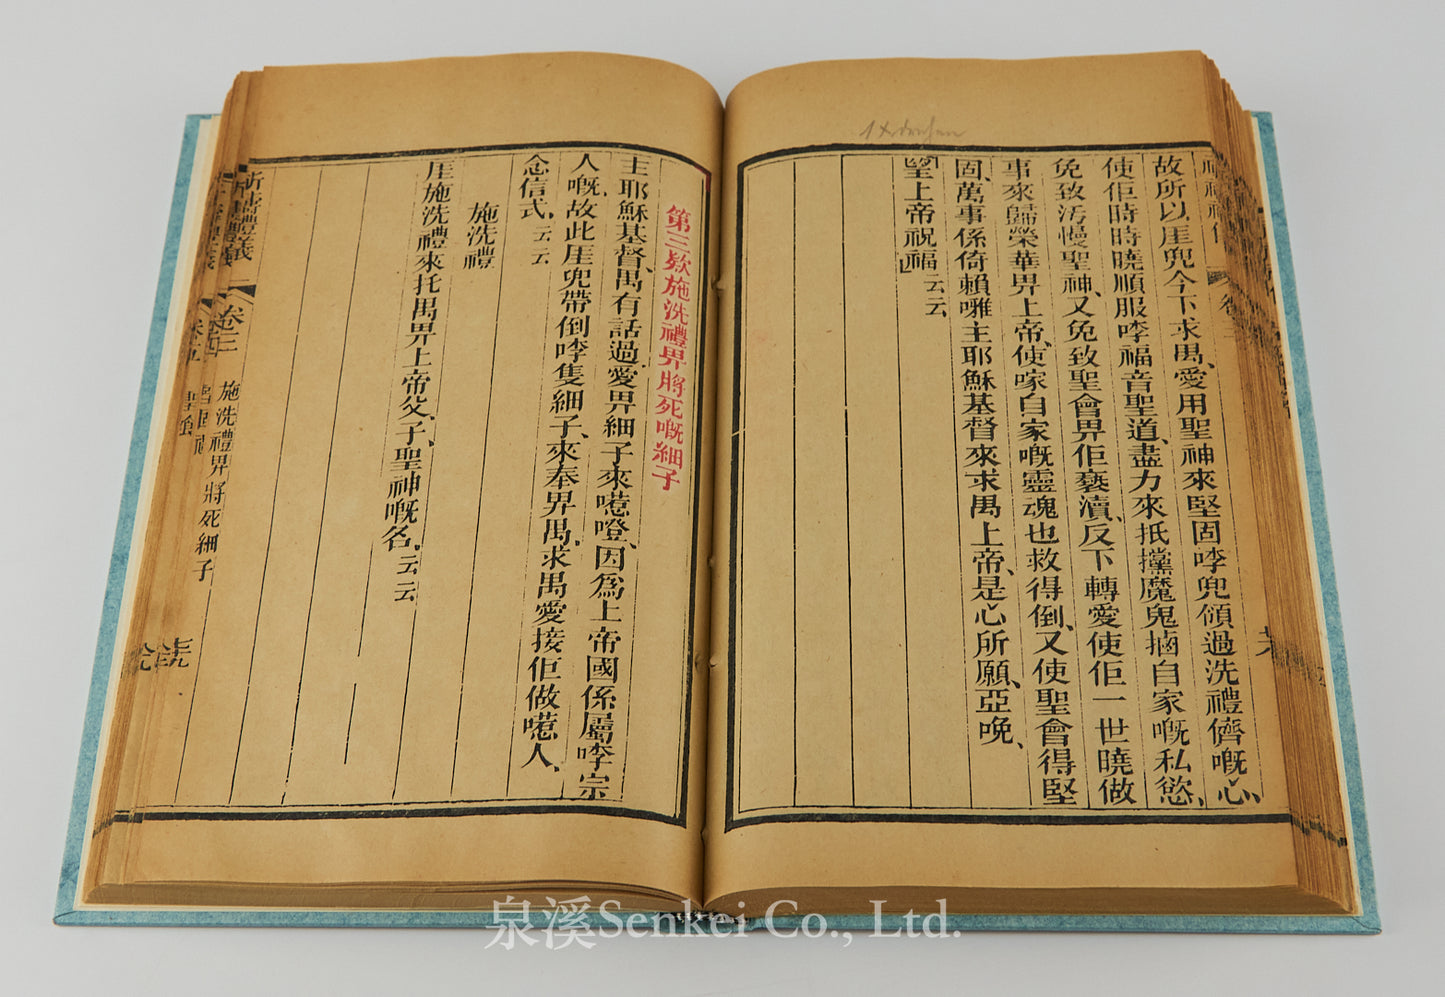 故所以𠊎兜今下求禺、愛用聖神來堅固㖿兜傾過洗禮儕嘅心、
使佢時時曉順服㖿福音聖道、盡力來抵擋魔鬼㧯自家嘅私慾、
免致汚慢聖神、又免致聖會畀佢褻瀆、反下轉愛使佢一世曉做
事來歸榮華畀上帝、使㖿自家嘅靈魂也救得倒、又使聖會得堅
固、萬事係倚賴㗒主耶穌基督來求禺上帝、是心所願、亞晚、
望上帝祝福 云云
第三欵施洗禮畀將死嘅細子
主耶穌基督、禺有話過、愛畀細子來𠸊噔、因爲上帝國係屬㖿宗
人嘅、故此𠊎兜帶倒㖿隻細子、來奉畀禺、求禺愛接佢做𠸊人、
念信式、云云
施洗禮
𠊎施洗禮來托禺畀上帝父、子、聖神嘅名、云云
卷三
施洗禮畀將死細子
泉溪Senkei Co., Ltd.